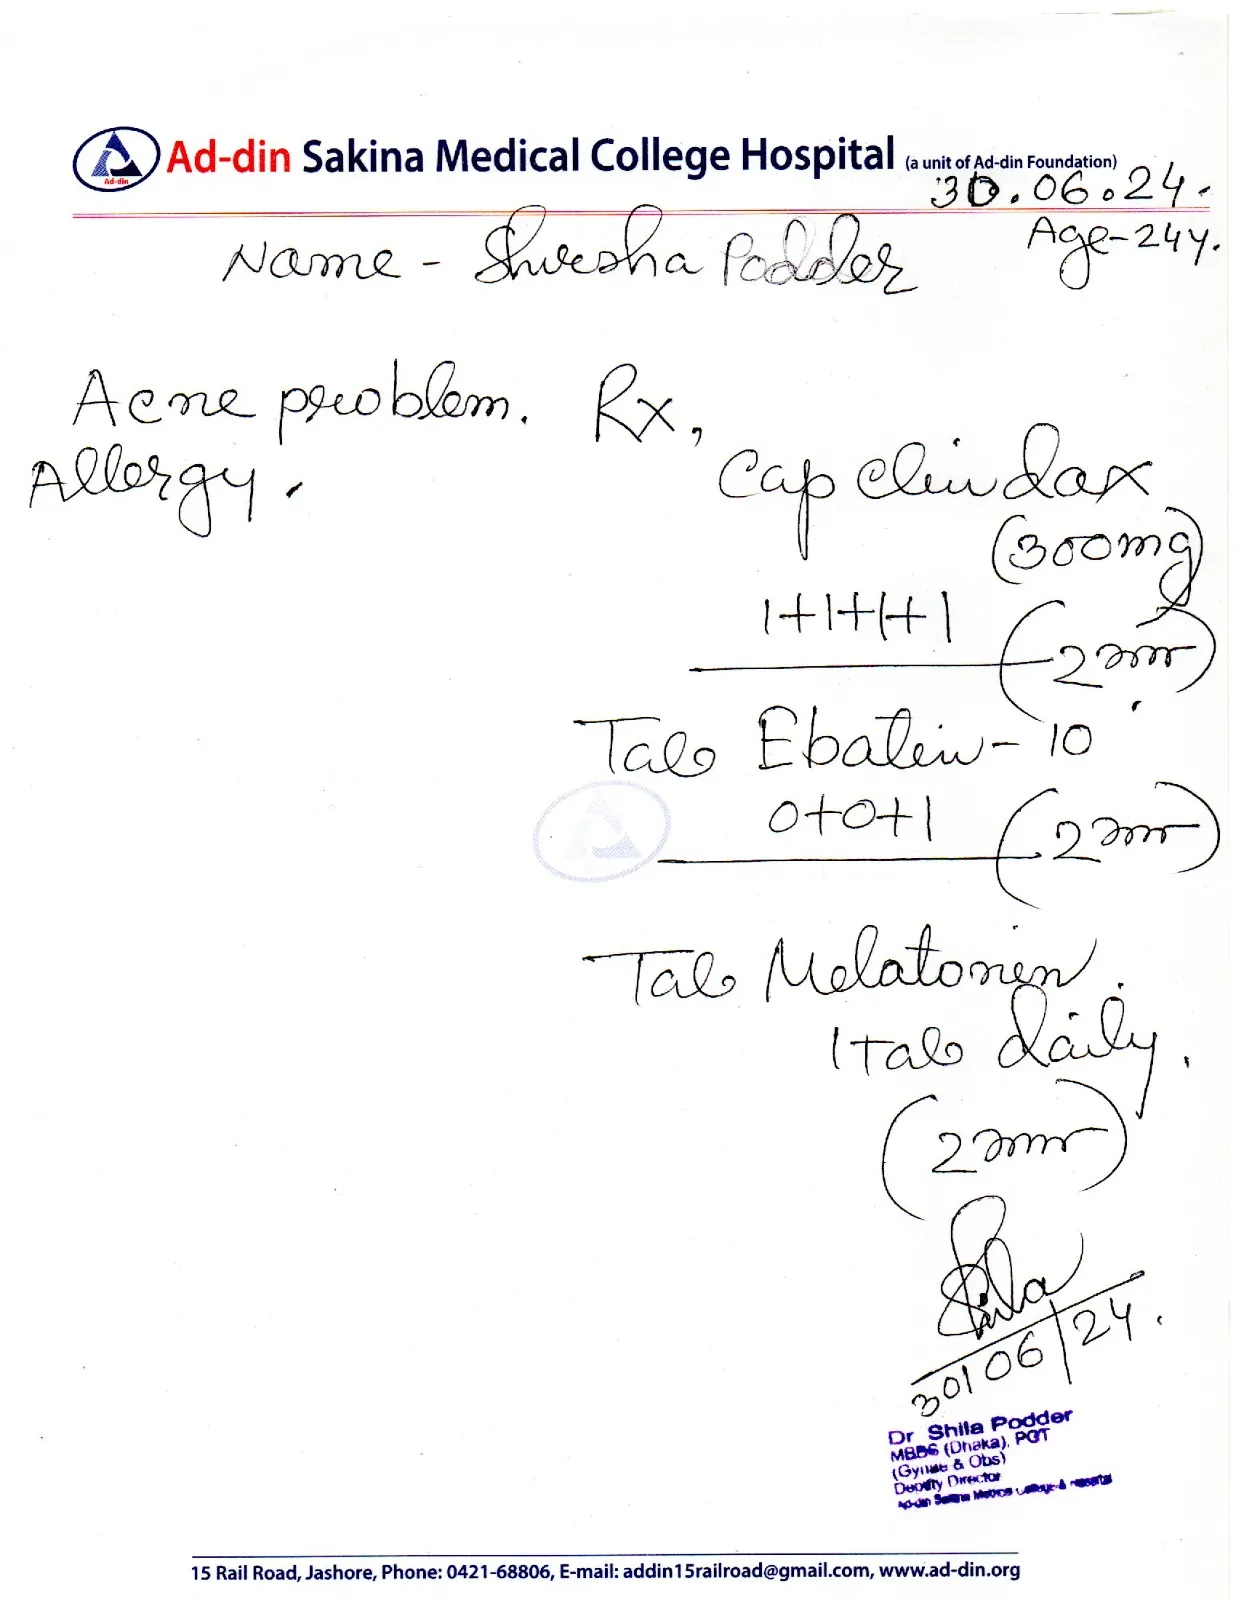 Ad-din
Ad-din Sakina Medical College Hospital (a unit of Ad-din Foundation)
30.06.24.
Name - Shresha Podder
Age-24y.
Acne problem.
Allergy.
Rx,
Cap Clindax
(300mg)
1+1+1+1
(2 মাস)
Tab Ebatin-10
0+0+1
(2 মাস)
Tab Melatonin.
1 tab daily.
(2 মাস)
Shila
30/06/24.
Dr Shila Podder
MBBS (Dhaka), PGT
(Gynae & Obs)
Deputy Director
Ad-din Sakina Medical College & Hospital
15 Rail Road, Jashore, Phone: 0421-68806, E-mail: addin15railroad@gmail.com, www.ad-din.org